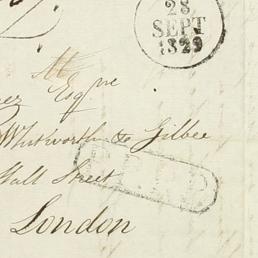 28
SEPT
1829
Esq
Whitworth & Gilbee
Wall Street
London